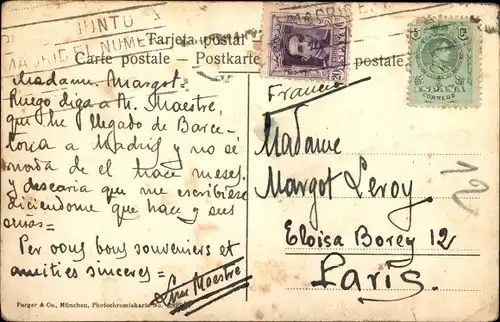 JUNTO
MADRID EL NUMERO
MADRID
Tarjeta postal
Carte postale — Postkarte
postale —
20
5
CORREOS
Francia
Madame Margot.
Ruego diga a Mr. Maestre,
que he llegado de Barce-
lona a Madrid y no sé
nada de el hace meses.
y desearia que me escribiese
diciendome que hace y sus
señas=
Per vous bons souvenirs et
amities sinceres=
Maestre
Madame
Margot Leroy
Eloisa Borey 12
Paris.
12
Purger & Co., München, Photochromiekarte No.